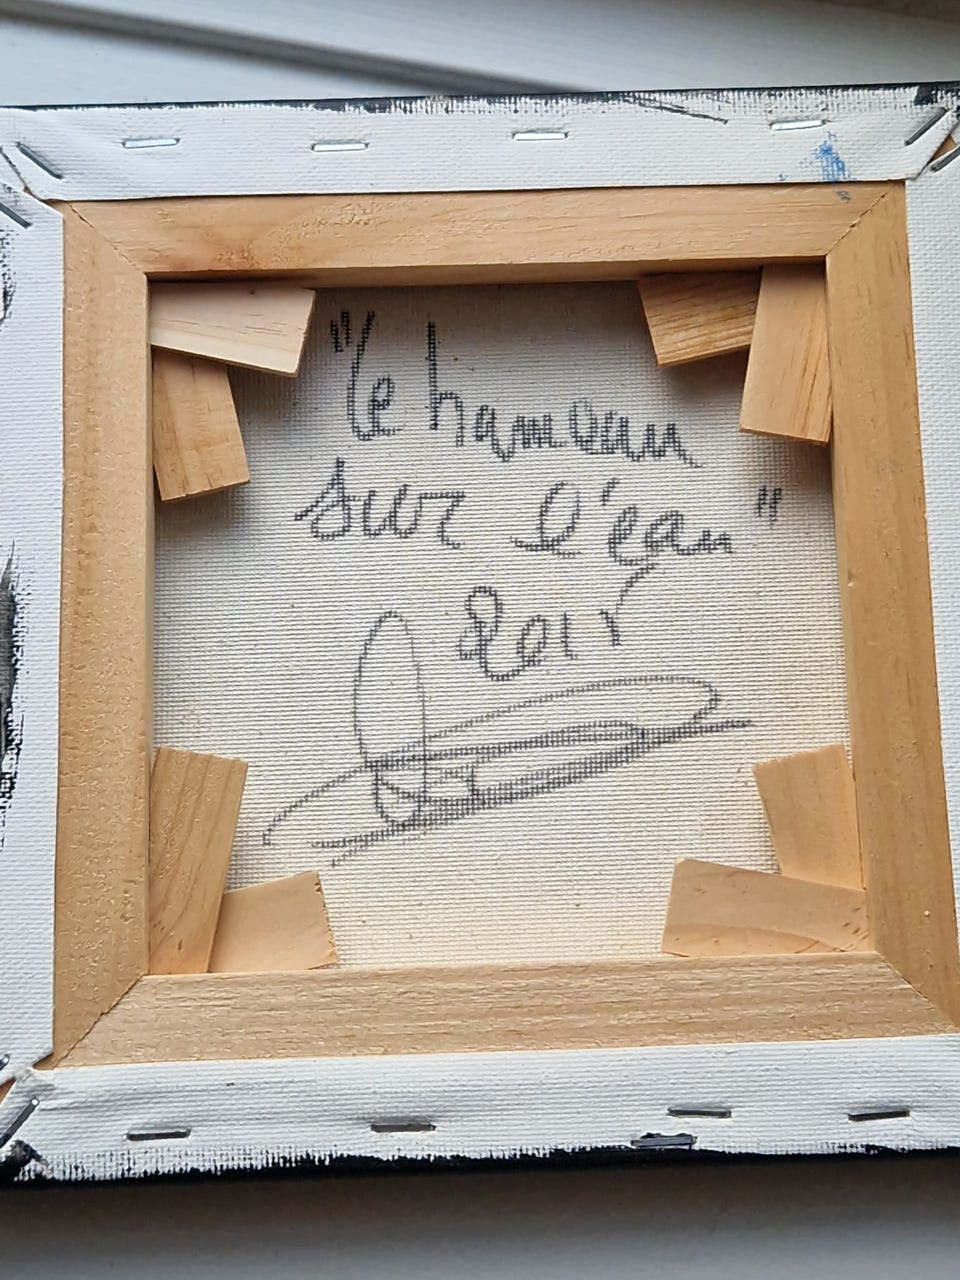 "le hameau
sur l'eau"
Loir